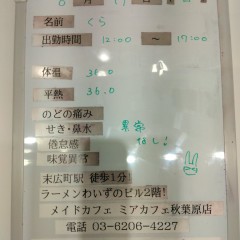 8 月 17 日
名前 くら
出勤時間 12:00 ～ 17:00
体温 36.0
平熱 36.0
のどの痛み
せき・鼻水
倦怠感
味覚異常
異常なし!
末広町駅 徒歩1分!
ラーメンわいずのビル2階!
メイドカフェ ミアカフェ秋葉原店
電話 03-6206-4227